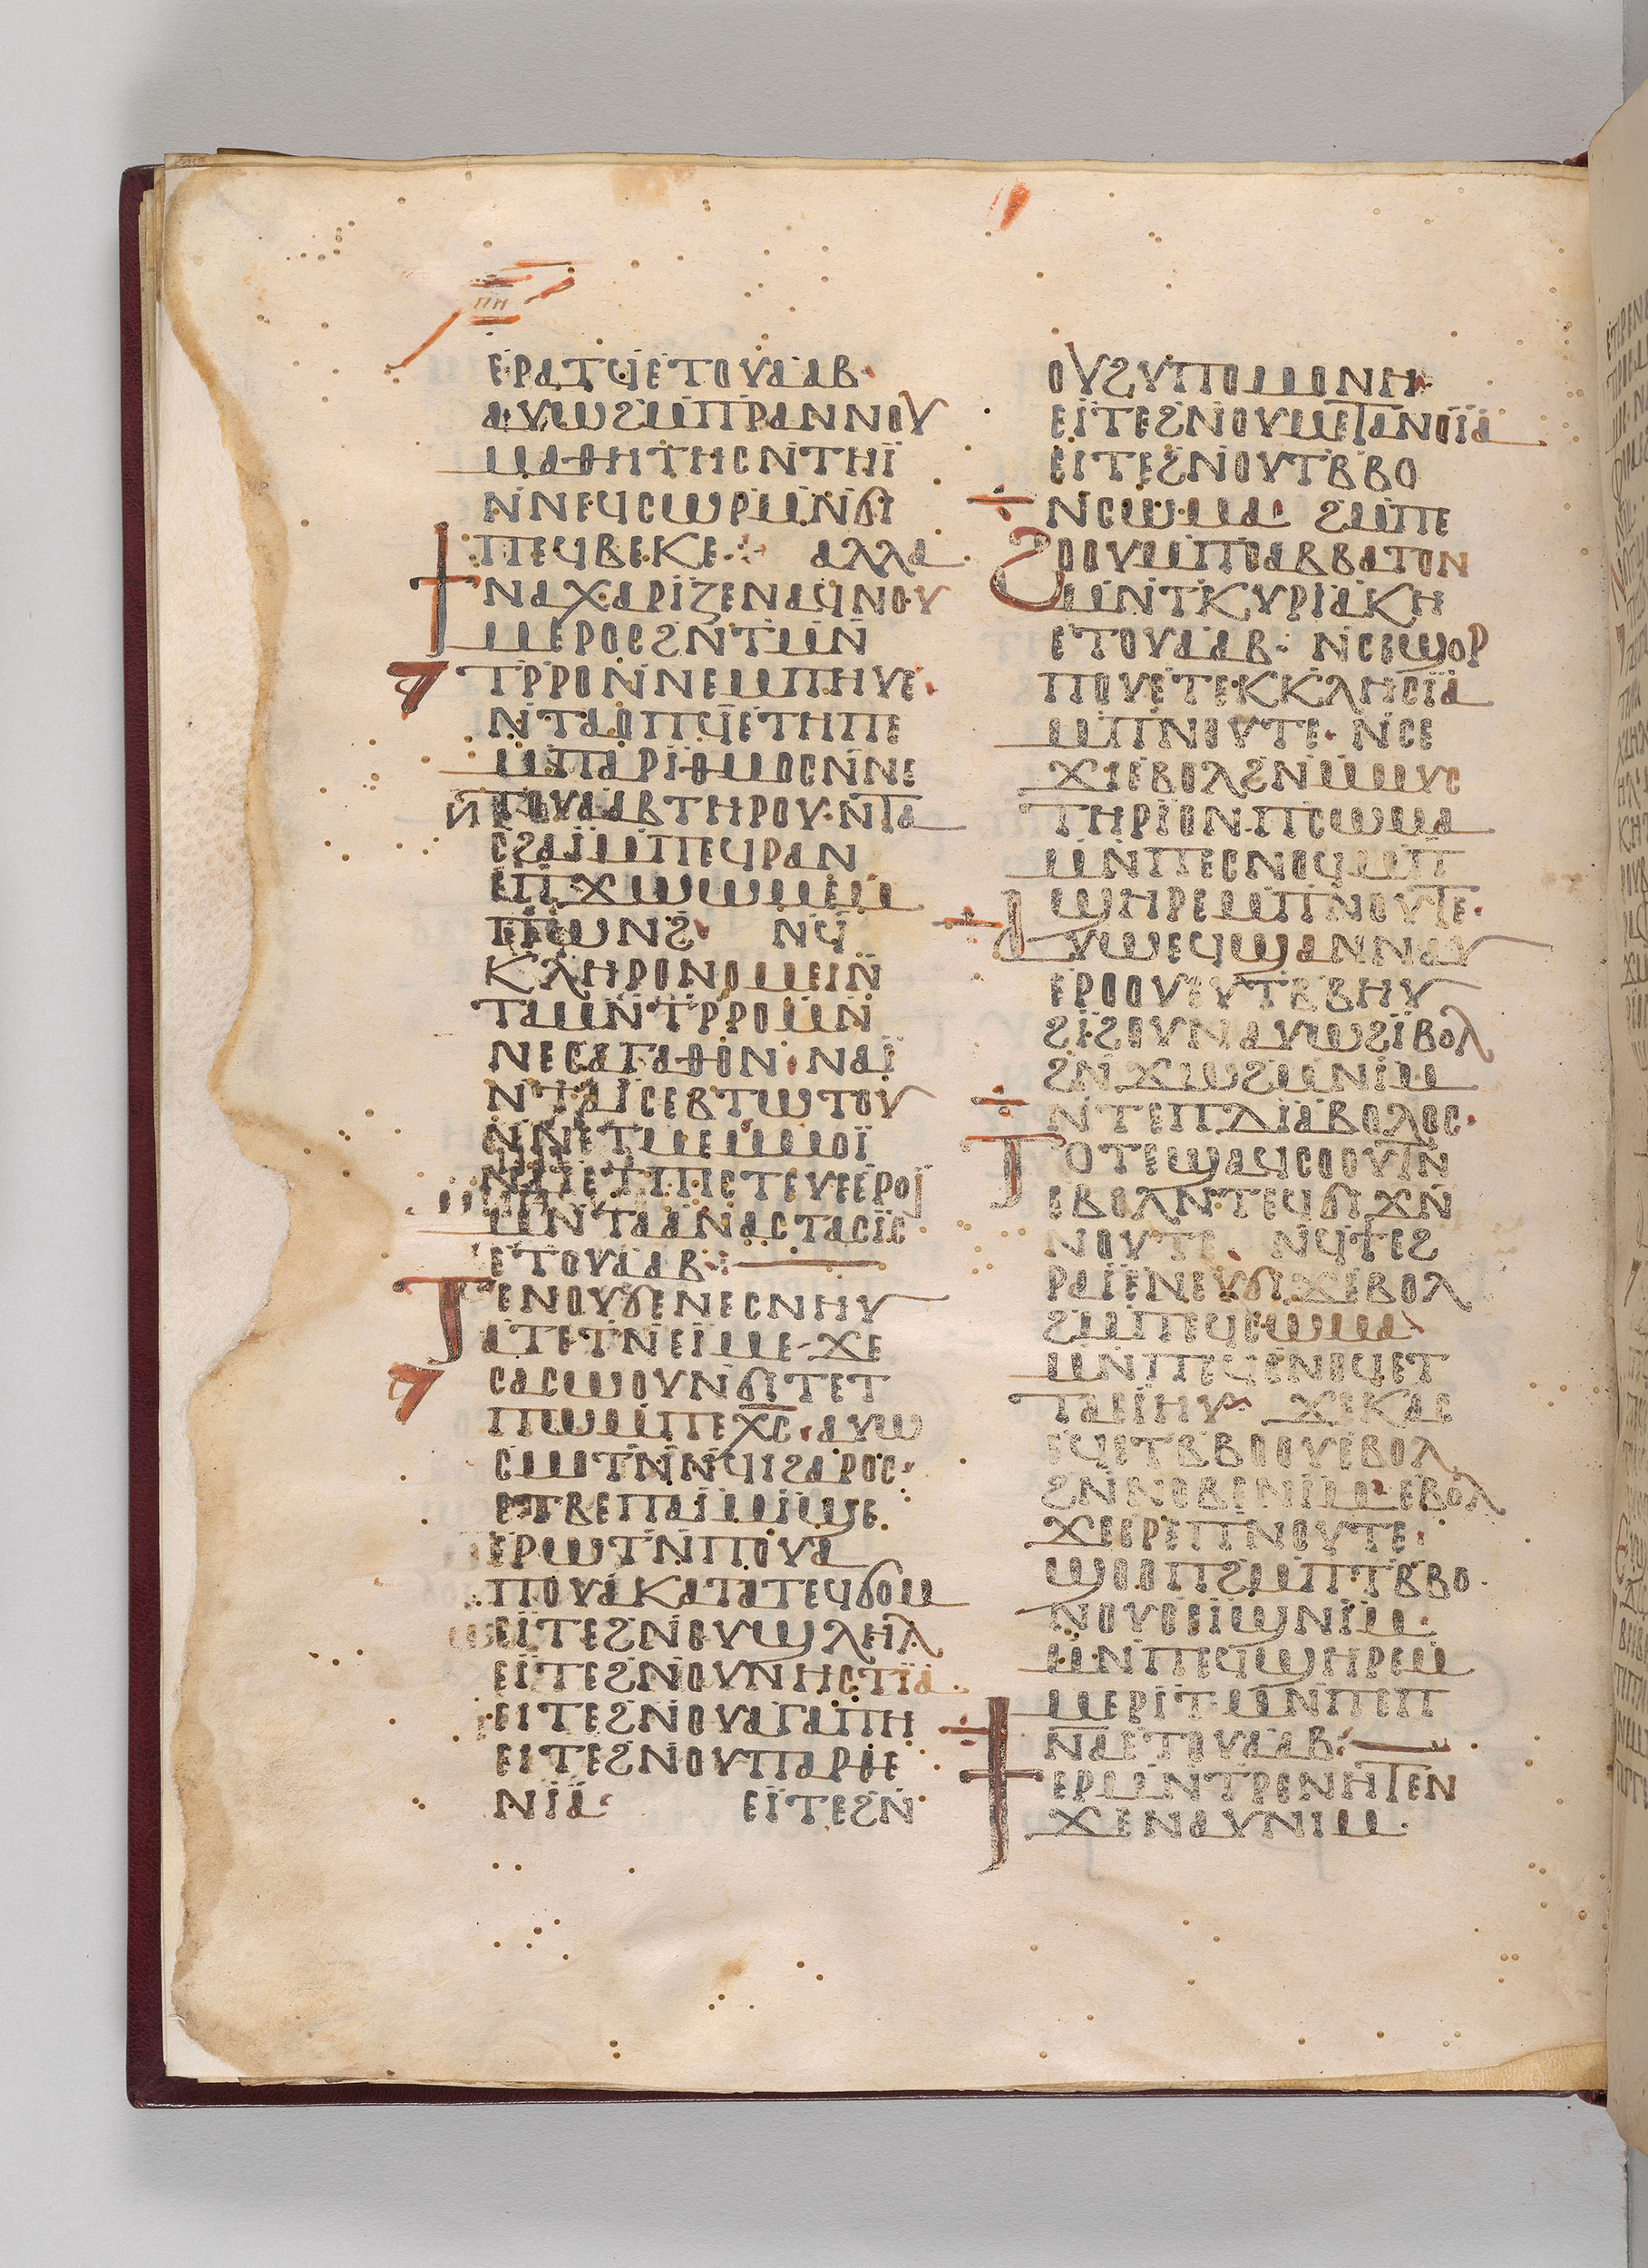 ⲡⲏ
ⲉⲣⲁⲧϥⲉⲧⲟⲩⲁⲁⲃ·
ⲁⲩⲱϩⲙⲡⲣⲁⲛⲛⲟⲩ
ⲙⲁⲑⲏⲧⲏⲥⲛⲧⲏⲓ̈
ⲛⲛⲉϥⲥⲱⲣⲙⲛϭⲓ
ⲡⲉϥⲃⲉⲕⲉ· ⲁⲗⲗⲁ
ϯⲛⲁⲭⲁⲣⲓⲍⲉⲛⲁϥⲛⲟⲩ
ⲙⲉⲣⲟⲥϩⲛⲧⲙⲛ
ⲧⲣⲣⲟⲛⲛⲉⲙⲡⲏⲩⲉ·
ⲛⲧⲁⲟⲡϥⲉⲧⲏⲡⲉ
ⲙⲡⲁⲣⲓⲑⲙⲟⲥⲛⲛⲉ
ⲧⲟⲩⲁⲁⲃⲧⲏⲣⲟⲩ·ⲛⲧⲁ
ⲥϩⲁⲓ̈ⲙⲡⲉϥⲣⲁⲛ
ⲉⲡϫⲱⲱⲙⲉⲙ
ⲡⲱⲛϩ· ⲛϥ
ⲕⲗⲏⲣⲟⲛⲟⲙⲉⲓⲛ
ⲧⲁⲙⲛⲧⲣⲣⲟⲙⲛ
ⲛⲉⲥⲁⲅⲁⲑⲟⲛ·ⲛⲁⲓ̈
ⲛⲧⲁⲓⲥⲉⲃⲧⲱⲧⲟⲩ
ⲛⲛⲉⲧⲙⲉⲙⲙⲟⲓ̈
ⲛⲁⲓⲉⲧⲡⲓⲥⲧⲉⲩⲉⲉⲣⲟⲓ
ⲙⲛⲧⲁⲁⲛⲁⲥⲧⲁⲥⲓ̈ⲥ
ⲉⲧⲟⲩⲁⲁⲃ:
ⲧⲉⲛⲟⲩϭⲉⲛⲉⲥⲛⲏⲩ
ⲁⲧⲉⲧⲛⲉⲓⲙⲉ·ϫⲉ
ⲥⲁⲥⲱⲟⲩⲛϭⲓⲧⲉⲧ
ⲡⲱⲙⲡⲉⲭⲥ·ⲁⲩⲱ
ⲥⲙⲟⲧⲛⲛϥⲓϩⲁⲣⲟⲥ·
ⲉⲧⲃⲉⲡⲁⲓ̈ⲙⲓϣⲉ
ⲉⲣⲱⲧⲛⲡⲟⲩⲁ
ⲡⲟⲩⲁⲕⲁⲧⲁⲧⲉϥϭⲟⲙ
ⲉⲓ̈ⲧⲉϩⲛⲟⲩϣⲗⲏⲗ
ⲉⲓ̈ⲧⲉϩⲛⲟⲩⲛⲏⲥⲧⲓ̈ⲁ·
ⲉⲓⲧⲉϩⲛⲟⲩⲁⲅⲁⲡⲏ
ⲉⲓⲧⲉϩⲛⲟⲩⲡⲁⲣⲑⲉ
ⲛⲓⲁ· ⲉⲓ̈ⲧⲉϩⲛ
ⲟⲩϩⲩⲡⲟⲙⲟⲛⲏ·
ⲉⲓ̈ⲧⲉϩⲛⲟⲩⲙⲉⲧⲁⲛⲟⲓ̈ⲁ
ⲉⲓⲧⲉϩⲛⲟⲩⲧⲃⲃⲟ
ⲛⲥⲱⲙⲁ· ϩⲙⲡⲉ
ϩⲟⲟⲩⲙⲡⲥⲁⲃⲃⲁⲧⲟⲛ
ⲙⲛⲧⲕⲩⲣⲓⲁⲕⲏ
ⲉⲧⲟⲩⲁⲁⲃ· ⲛⲥⲉϣⲟⲣ
ⲡⲟⲩⲉⲧⲉⲕⲕⲗⲏⲥⲓ̈ⲁ
ⲙⲡⲛⲟⲩⲧⲉ·ⲛⲥⲉ
ϫⲓⲉⲃⲟⲗϩⲛⲙⲙⲩⲥ
ⲧⲏⲣⲓⲟⲛ·ⲡⲥⲱⲙⲁ
ⲙⲛⲡⲉⲥⲛⲟϥⲙⲡ
ϣⲏⲣⲉⲙⲡⲛⲟⲩⲧⲉ·
ⲁⲩⲱⲉϥϣⲁⲛⲛⲁⲩ
ⲉⲣⲟⲟⲩⲉⲩⲧⲃⲃⲏⲩ
ϩⲓϩⲟⲩⲛⲁⲩⲱϩⲓ̈ⲃⲟⲗ
ϩⲛϫⲱϩⲙⲛⲓⲙ
ⲛⲧⲉⲡⲇⲓⲁⲃⲟⲗⲟⲥ·
ⲧⲟⲧⲉϣⲁϥⲥⲟⲟⲩⲧⲛ
ⲉⲃⲟⲗⲛⲧⲉϥϭⲓϫⲛ
ⲛⲟⲩⲧⲉ· ⲛϥϯⲉϩ
ⲣⲁⲓ̈ⲉⲛⲉⲩϭⲓϫⲉⲃⲟⲗ
ϩⲙⲡⲉϥⲥⲱⲙⲁ
ⲙⲛⲡⲉϥⲥⲛⲟϥⲉⲧ
ⲧⲁⲉⲓⲏⲩ· ϫⲉⲕⲁⲥ
ⲉϥⲉⲧⲃⲃⲟⲟⲩⲉⲃⲟⲗ
ϩⲛⲛⲟⲃⲉⲛⲓⲙ·ⲉⲃⲟⲗ
ϫⲉⲉⲣⲉⲡⲛⲟⲩⲧⲉ
ϣⲟⲟⲡϩⲙⲡⲧⲃⲃⲟ·
ⲛⲟⲩⲟⲉⲓϣⲛⲓⲙ
ⲙⲛⲡⲉϥϣⲏⲣⲉⲙ
ⲙⲉⲣⲓⲧ·ⲙⲛⲡⲉⲡ
ⲛⲁⲉⲧⲟⲩⲁⲁⲃ:
ϯⲉⲣⲙⲛⲧⲣⲉⲛⲏⲧⲉⲛ
ϫⲉⲛⲁⲩⲛⲓⲙ·